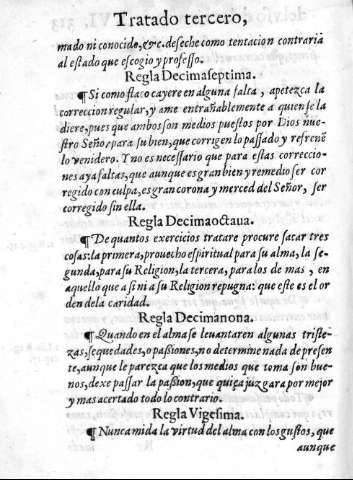 Tratado tercero,
mado ni conocido, &c. deseche como tentacion contraria
al estado que escogio y professo.
Regla Decimaseptima.
¶ Si como flaco cayere en alguna falta, apetezca la
correccion regular, y ame entrañablemente a quien se la
diere, pues que ambos son medios puestos por Dios nue-
stro Señor, para su bien, que corrigen lo passado y refrenẽ
lo venidero. Y no es necessario que para estas correccio-
nes aya faltas, que aunque es gran bien y remedio ser cor
regido con culpa, es gran corona y merced del Señor, ser
corregido sin ella.
Regla Decimaoctaua.
¶ De quantos exercicios tratare procure sacar tres
cosas: la primera, prouecho espiritual para su alma, la se-
gunda, para su Religion, la tercera, para los de mas, en
aquello que a si ni a su Religion repugna: que este es el or
den de la caridad.
Regla Decimanona.
¶ Quando en el alma se leuantaren algunas triste-
zas, sequedades, o passiones, no determine nada de presen
te, aunque le parezca que los medios que toma son bue-
nos, dexe passar la passion, que quiça juzgara por mejor
y mas acertado todo lo contrario.
Regla Vigesima.
¶ Nunca mida la virtud del alma con los gustos, que
aunque